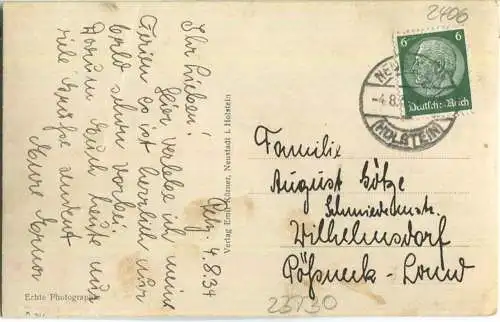 2406
6 6
Deutsches Reich
NEU
-4.8.
(HOLSTEIN)
Petz. 4.8.34
Ihr Lieben!
Hier verlebe ich meine
Ferien. Es ist herrlich nur
bald schon vorbei.
Darum Euch heute nur
viele Grüße sendet
Eure
Verlag Emil Körner, Neustadt i. Holstein
Familie
August Götze
Schmiedemstr.
Wilhelmsdorf
Pößneck-Land
23730
Echte Photographie